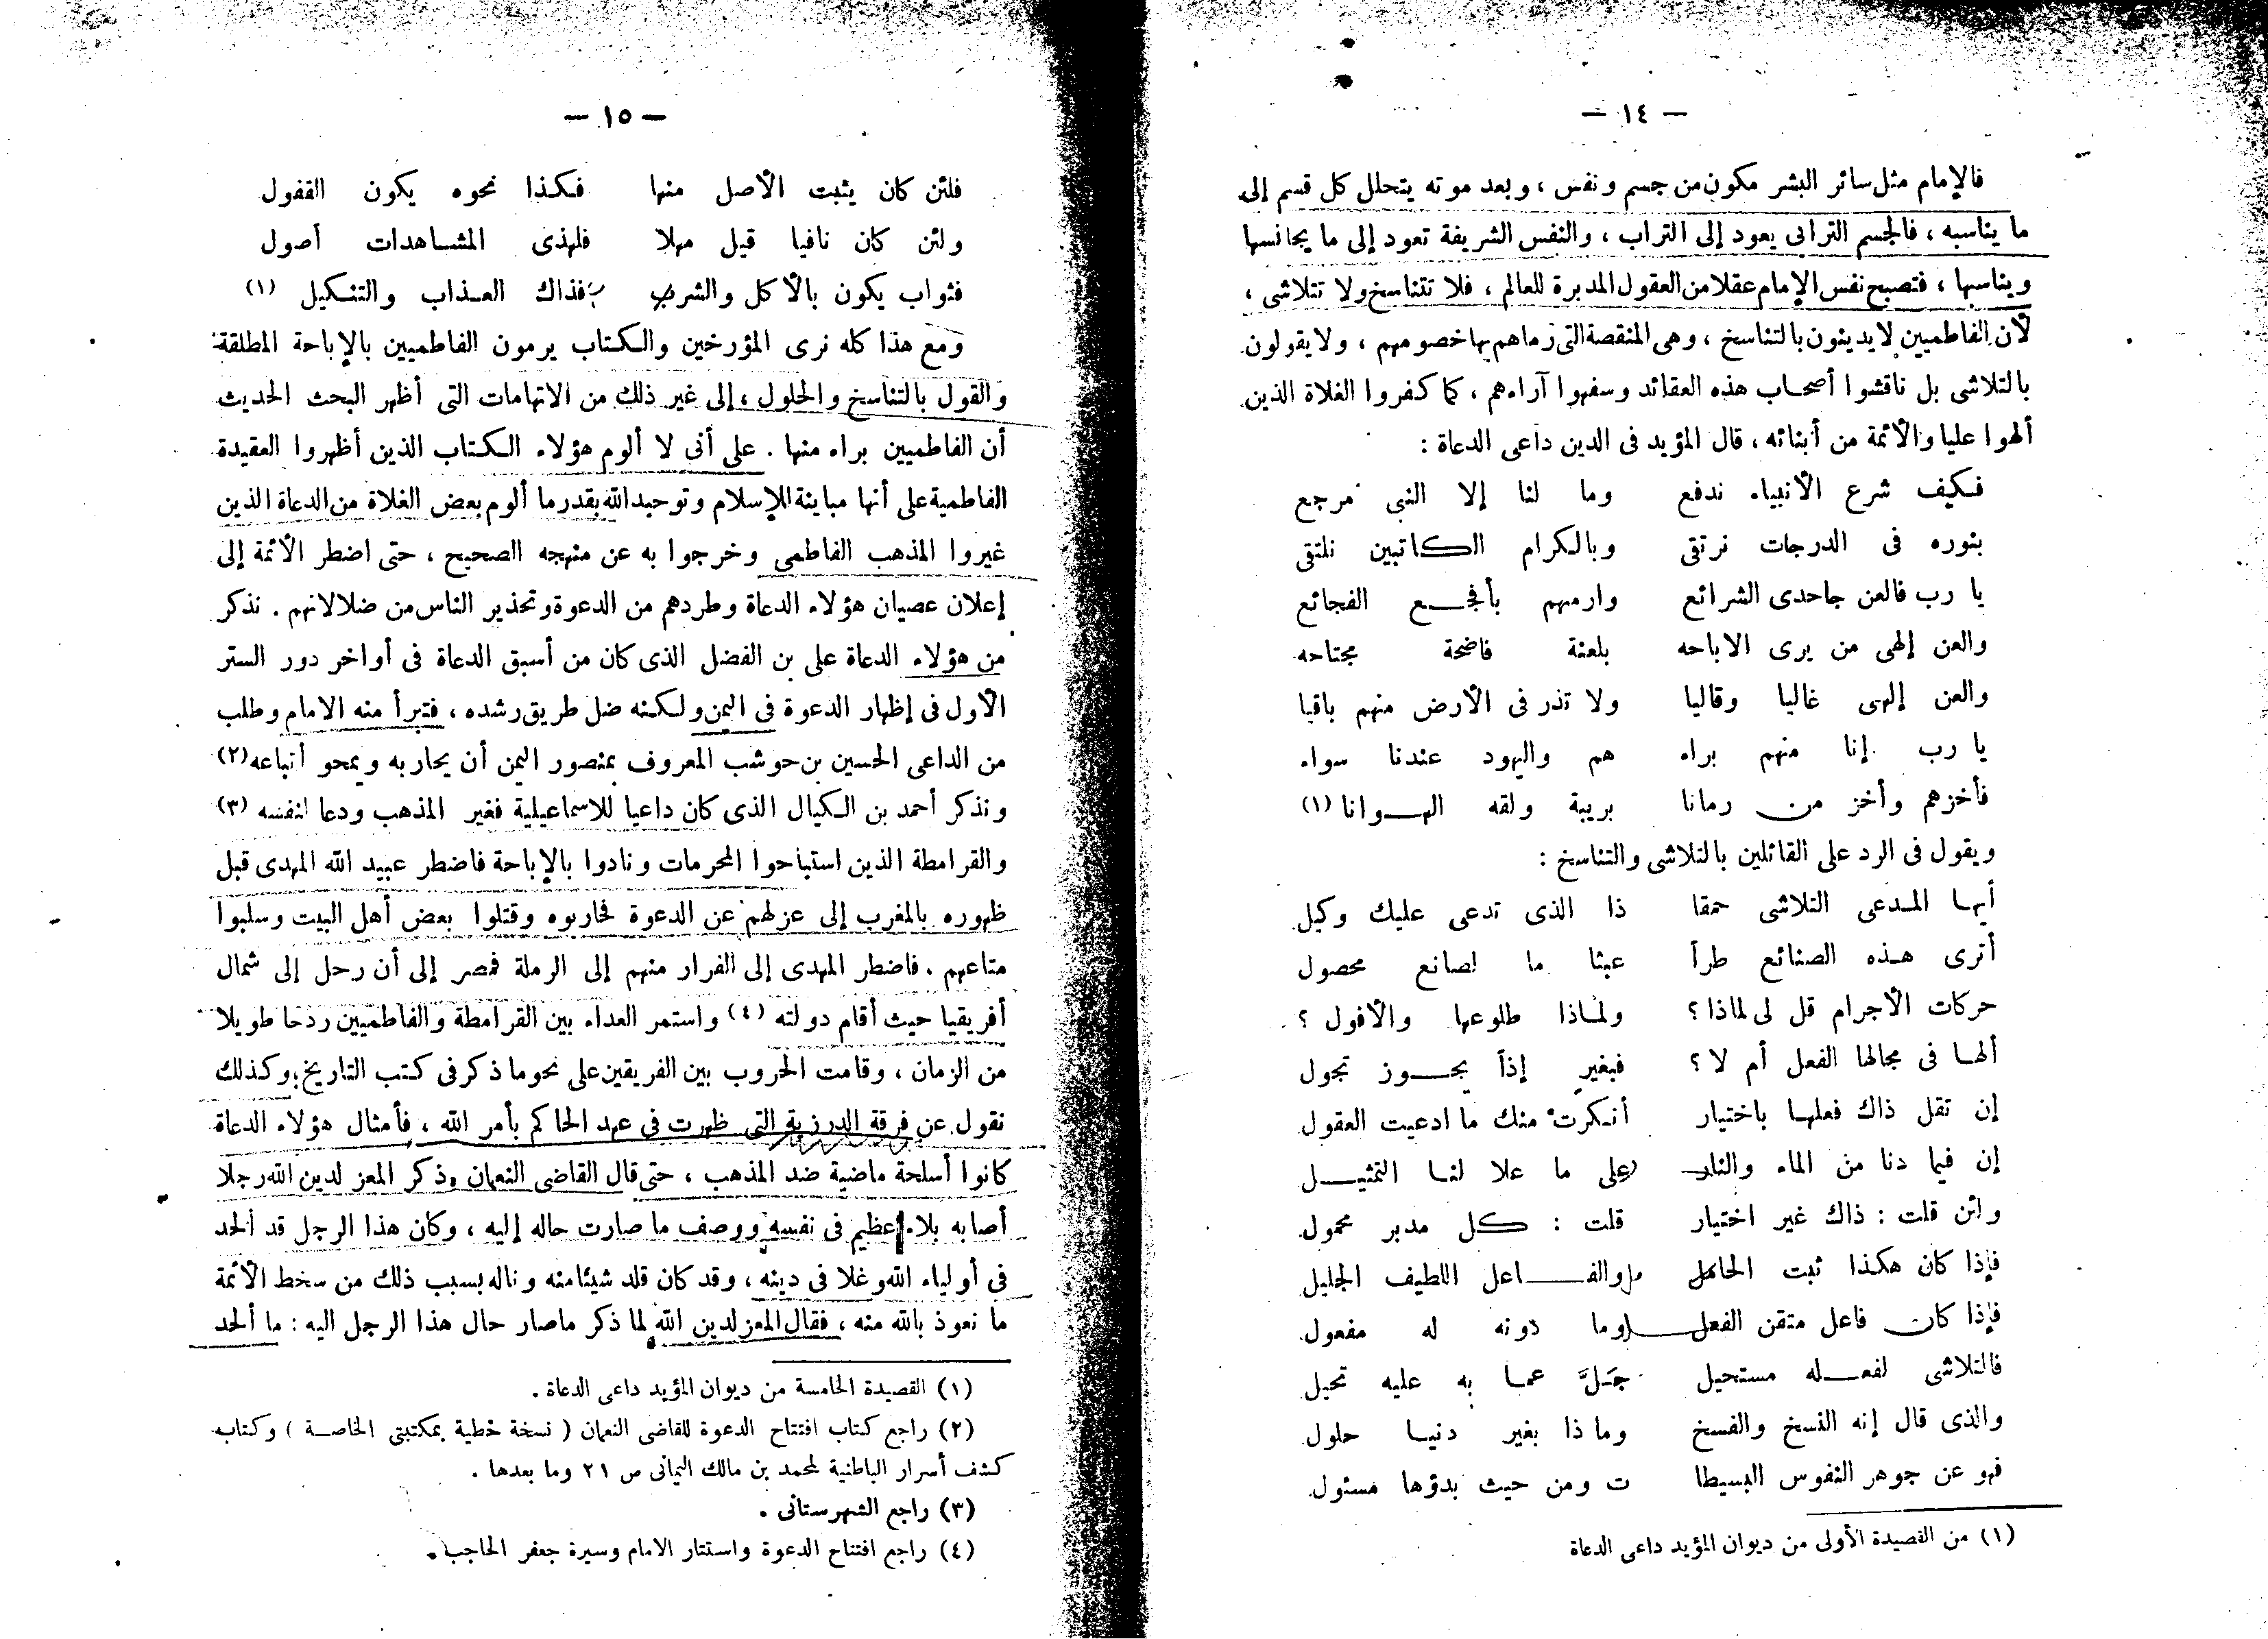 — ١٤ —
فالإمام مثل سائر البشر مكون من جسم ونفس ، وبعد موته يتحلل كل قسم إلى
ما يناسبه ، فالجسم الترابى يعود إلى التراب ، والنفس الشريفة تعود إلى ما يجانسها
ويناسبها ، فتصبح نفس الإمام عقلا من العقول المدبرة للعالم ، فلا تتناسخ ولا تتلاشى ،
لأن الفاطميين لا يدينون بالتناسخ ، وهى المنقصة التى رماهم بها خصومهم ، ولا يقولون
بالتلاشى بل ناقشوا أصحاب هذه العقائد وسفهوا آراءهم ، كما كفروا الغلاة الذين
ألهوا عليا والأئمة من أبنائه ، قال المؤيد فى الدين داعى الدعاة :
فكيف شرع الأنبياء ندفع وما لنا إلا النبى مرجع
بنوره فى الدرجات نرتقى وبالكرام الكاتبين نلتقى
يا رب فالعن جاحدى الشرائع وارمهم بأفجع الفجائع
والعن إلهى من يرى الاباحه بلعنة فاضحة مجتاحه
والعن إلهى غاليا وقاليا ولا تذر فى الأرض منهم باقيا
يا رب إنا منهم براء هم واليهود عندنا سواء
فأخزهم وأخز من رمانا بريبة ولقه الهوانا (١)
ويقول فى الرد على القائلين بالتلاشى والتناسخ :
أيها المدعى التلاشى حمقا ذا الذى تدعى عليك وكيل
أترى هذه الصنائع طرأ عبثا ما لصانع محصول
حركات الأجرام قل لى لماذا ؟ ولماذا طلوعها والأفول ؟
ألها فى مجالها الفعل أم لا ؟ فبغير إذاً يجوز تجول
إن تقل ذاك فعلها باختيار أنكرت منك ما ادعيت العقول
إن فيما دنا من الماء والنار على ما علا لنا التمثيل
ولئن قلت : ذاك غير اختيار قلت : كل مدبر محمول
فإذا كان هكذا ثبت الحامل والفاعل اللطيف الجليل
فإذا كان فاعل متقن الفعل وما دونه له مفعول
فالتلاشى لفعله مستحيل جَلَّ عما به عليه تحيل
والذى قال إنه النسخ والفسخ وماذا بغير دنيا حلول
فهو عن جوهر النفوس البسيطا ت ومن حيث بدؤها مسئول
(١) من القصيدة الأولى من ديوان المؤيد داعى الدعاة
— ١٥ —
فلئن كان يثبت الأصل منها فكذا نحوه يكون القفول
ولئن كان نافيا قيل مهلا فلهذى المشاهدات أصول
فثواب يكون بالأكل والشرب فذاك العذاب والتنكيل (١)
ومع هذا كله نرى المؤرخين والكتاب يرمون الفاطميين بالإباحة المطلقة
والقول بالتناسخ والحلول ، إلى غير ذلك من الاتهامات التى أظهر البحث الحديث
أن الفاطميين براء منها . على أنى لا ألوم هؤلاء الكتاب الذين أظهروا العقيدة
الفاطمية على أنها مباينة للإسلام وتوحيد الله بقدر ما ألوم بعض الغلاة من الدعاة الذين
غيروا المذهب الفاطمى وخرجوا به عن منهجه الصحيح ، حتى اضطر الأئمة إلى
إعلان عصيان هؤلاء الدعاة وطردهم من الدعوة وتحذير الناس من ضلالاتهم . نذكر
من هؤلاء الدعاة على بن الفضل الذى كان من أسبق الدعاة فى أواخر دور الستر
الأول فى إظهار الدعوة فى اليمن ولكنه ضل طريق رشده ، فتبرأ منه الامام وطلب
من الداعى الحسين بن حوشب المعروف بمنصور اليمن أن يحاربه ويمحو أتباعه (٢)
ونذكر أحمد بن الكيال الذى كان داعيا للاسماعيلية فغير المذهب ودعا لنفسه (٣)
والقرامطة الذين استباحوا المحرمات ونادوا بالإباحة فاضطر عبيد الله المهدى قبل
ظهوره بالمغرب إلى عزلهم عن الدعوة فحاربوه وقتلوا بعض أهل البيت وسلبوا
متاعهم . فاضطر المهدى إلى الفرار منهم إلى الرملة فمصر إلى أن رحل إلى شمال
أفريقيا حيث أقام دولته (٤) واستمر العداء بين القرامطة والفاطميين ردحا طويلا
من الزمان ، وقامت الحروب بين الفريقين على نحو ما ذكر فى كتب التاريخ ؛ وكذلك
نقول عن فرقة الدرزية التى ظهرت فى عهد الحاكم بأمر الله ، فأمثال هؤلاء الدعاة
كانوا أسلحة ماضية ضد المذهب ، حتى قال القاضى النعمان وذكر المعز لدين الله رجلا
أصابه بلاء عظيم فى نفسه ووصف ما صارت حاله إليه ، وكان هذا الرجل قد ألحد
فى أولياء الله وغلا فى دينه ، وقد كان قلد شيئا منه وناله بسبب ذلك من سخط الأئمة
ما نعوذ بالله منه ، فقال المعز لدين الله لما ذكر ماصار حال هذا الرجل اليه : ما ألحد
(١) القصيدة الخامسة من ديوان المؤيد داعى الدعاة .
(٢) راجع كتاب افتتاح الدعوة للقاضى النعمان ( نسخة خطية بمكتبتى الخاصة ) وكتاب
كشف أسرار الباطنية لمحمد بن مالك اليمانى ص ٢١ وما بعدها .
(٣) راجع الشهرستانى .
(٤) راجع افتتاح الدعوة واستتار الامام وسيرة جعفر الحاجب .